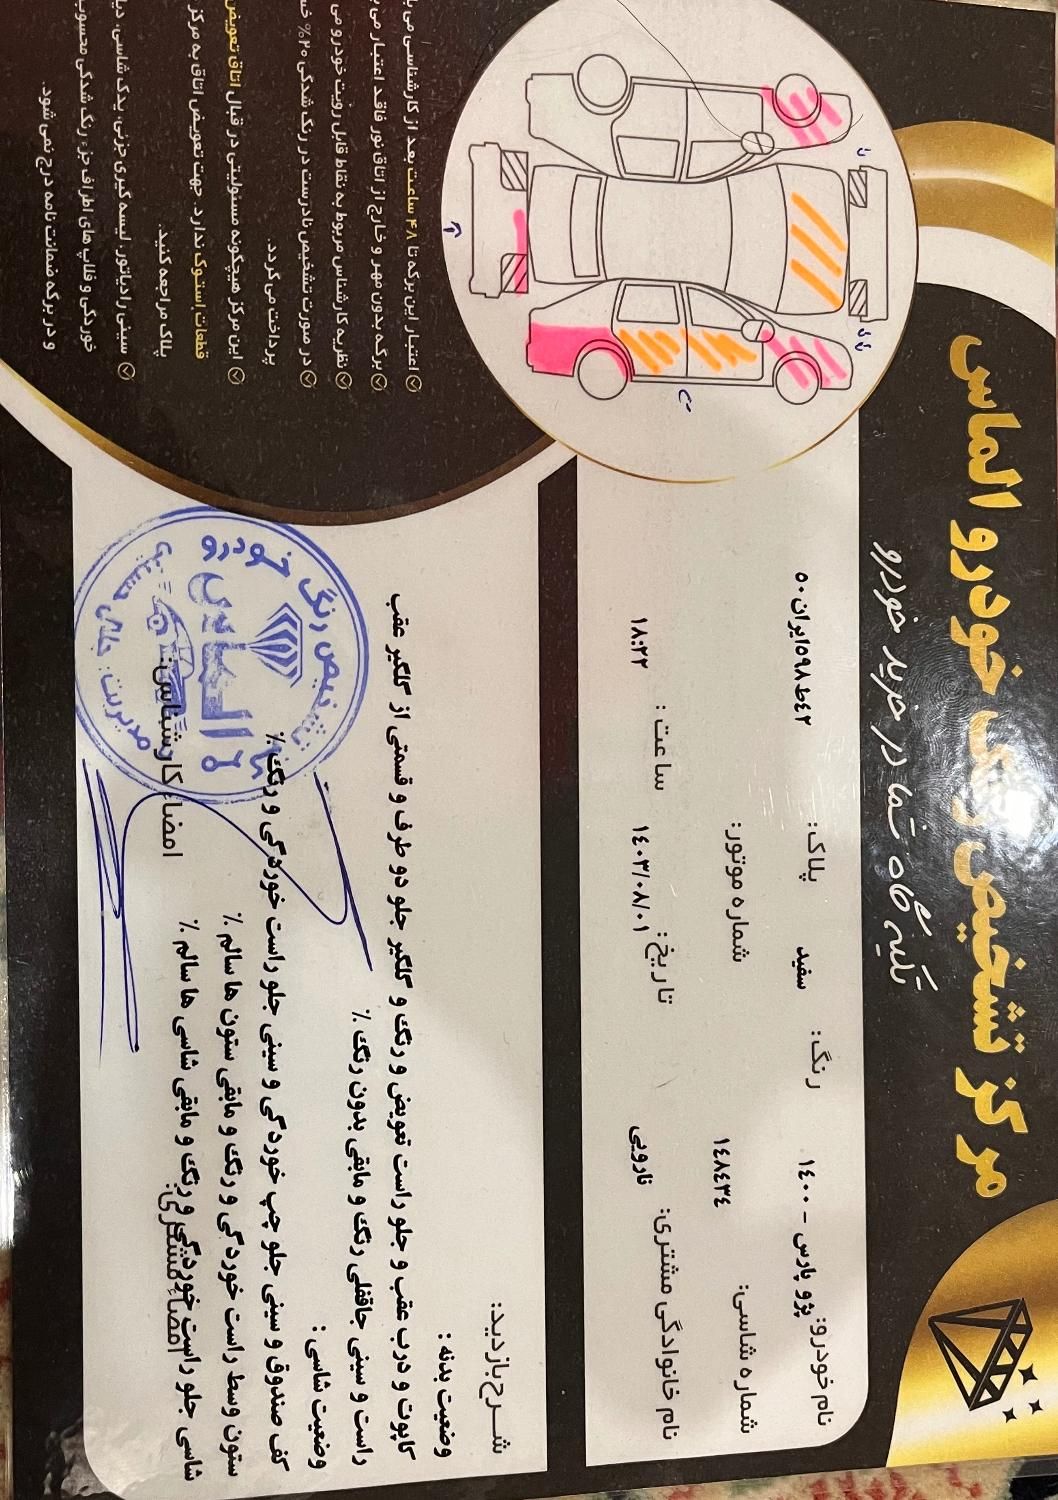 مرکز تشخیص رنگ خودرو الماس
تکیه گاه شما در خرید خودرو
نام خودرو: پژو پارس - ۱۴۰۰ رنگ: سفید پلاک: ۴۲ط۵۹۸ایران۵۰
شماره شاسی: ۱۴۸۴۳۴ شماره موتور:
نام خانوادگی مشتری: نارویی تاریخ: ۱۴۰۳/۰۸/۰۱ ساعت: ۱۸:۲۲
شرح بازدید:
وضعیت بدنه :
کاپوت و درب عقب و جلو راست تعویض و رنگ و گلگیر جلو دو طرف و قسمتی از گلگیر عقب
راست و سینی جاقفلی رنگ و مابقی بدون رنگ ٪
وضعیت شاسی :
کف صندوق و سینی جلو چپ خوردگی و سینی جلو راست خوردگی و رنگ ٪
ستون وسط راست خوردگی و رنگ و مابقی ستون ها سالم ٪
شاسی جلو راست خوردگی و رنگ و مابقی شاسی ها سالم ٪
امضاء مشتری:
امضاء کارشناس:
تشخیص رنگ خودرو
الماس
مدیریت: جلال حسینی
اعتبار این برگه تا ۴۸ ساعت بعد از کارشناسی
برگه بدون مهر و خارج از اتاق نور فاقد اعتبار
نظریه کارشناس مربوط به نقاط قابل رویت خودرو
در صورت تشخیص نادرست در رنگ شدگی ۲۰%
پرداخت می‌گردد.
این مرکز هیچگونه مسئولیتی در قبال اتاق تعویض
قطعات استوک ندارد. جهت تعویض اتاق به مرکز
پلاک مراجعه کنید.
سینی رادیاتور، لیسه گیری جزئی، یدک شاسی
خوردگی و قلاب های اطراف جز، رنگ شدگی محسوب
و در برگه ضمانت نامه درج نمی شود.